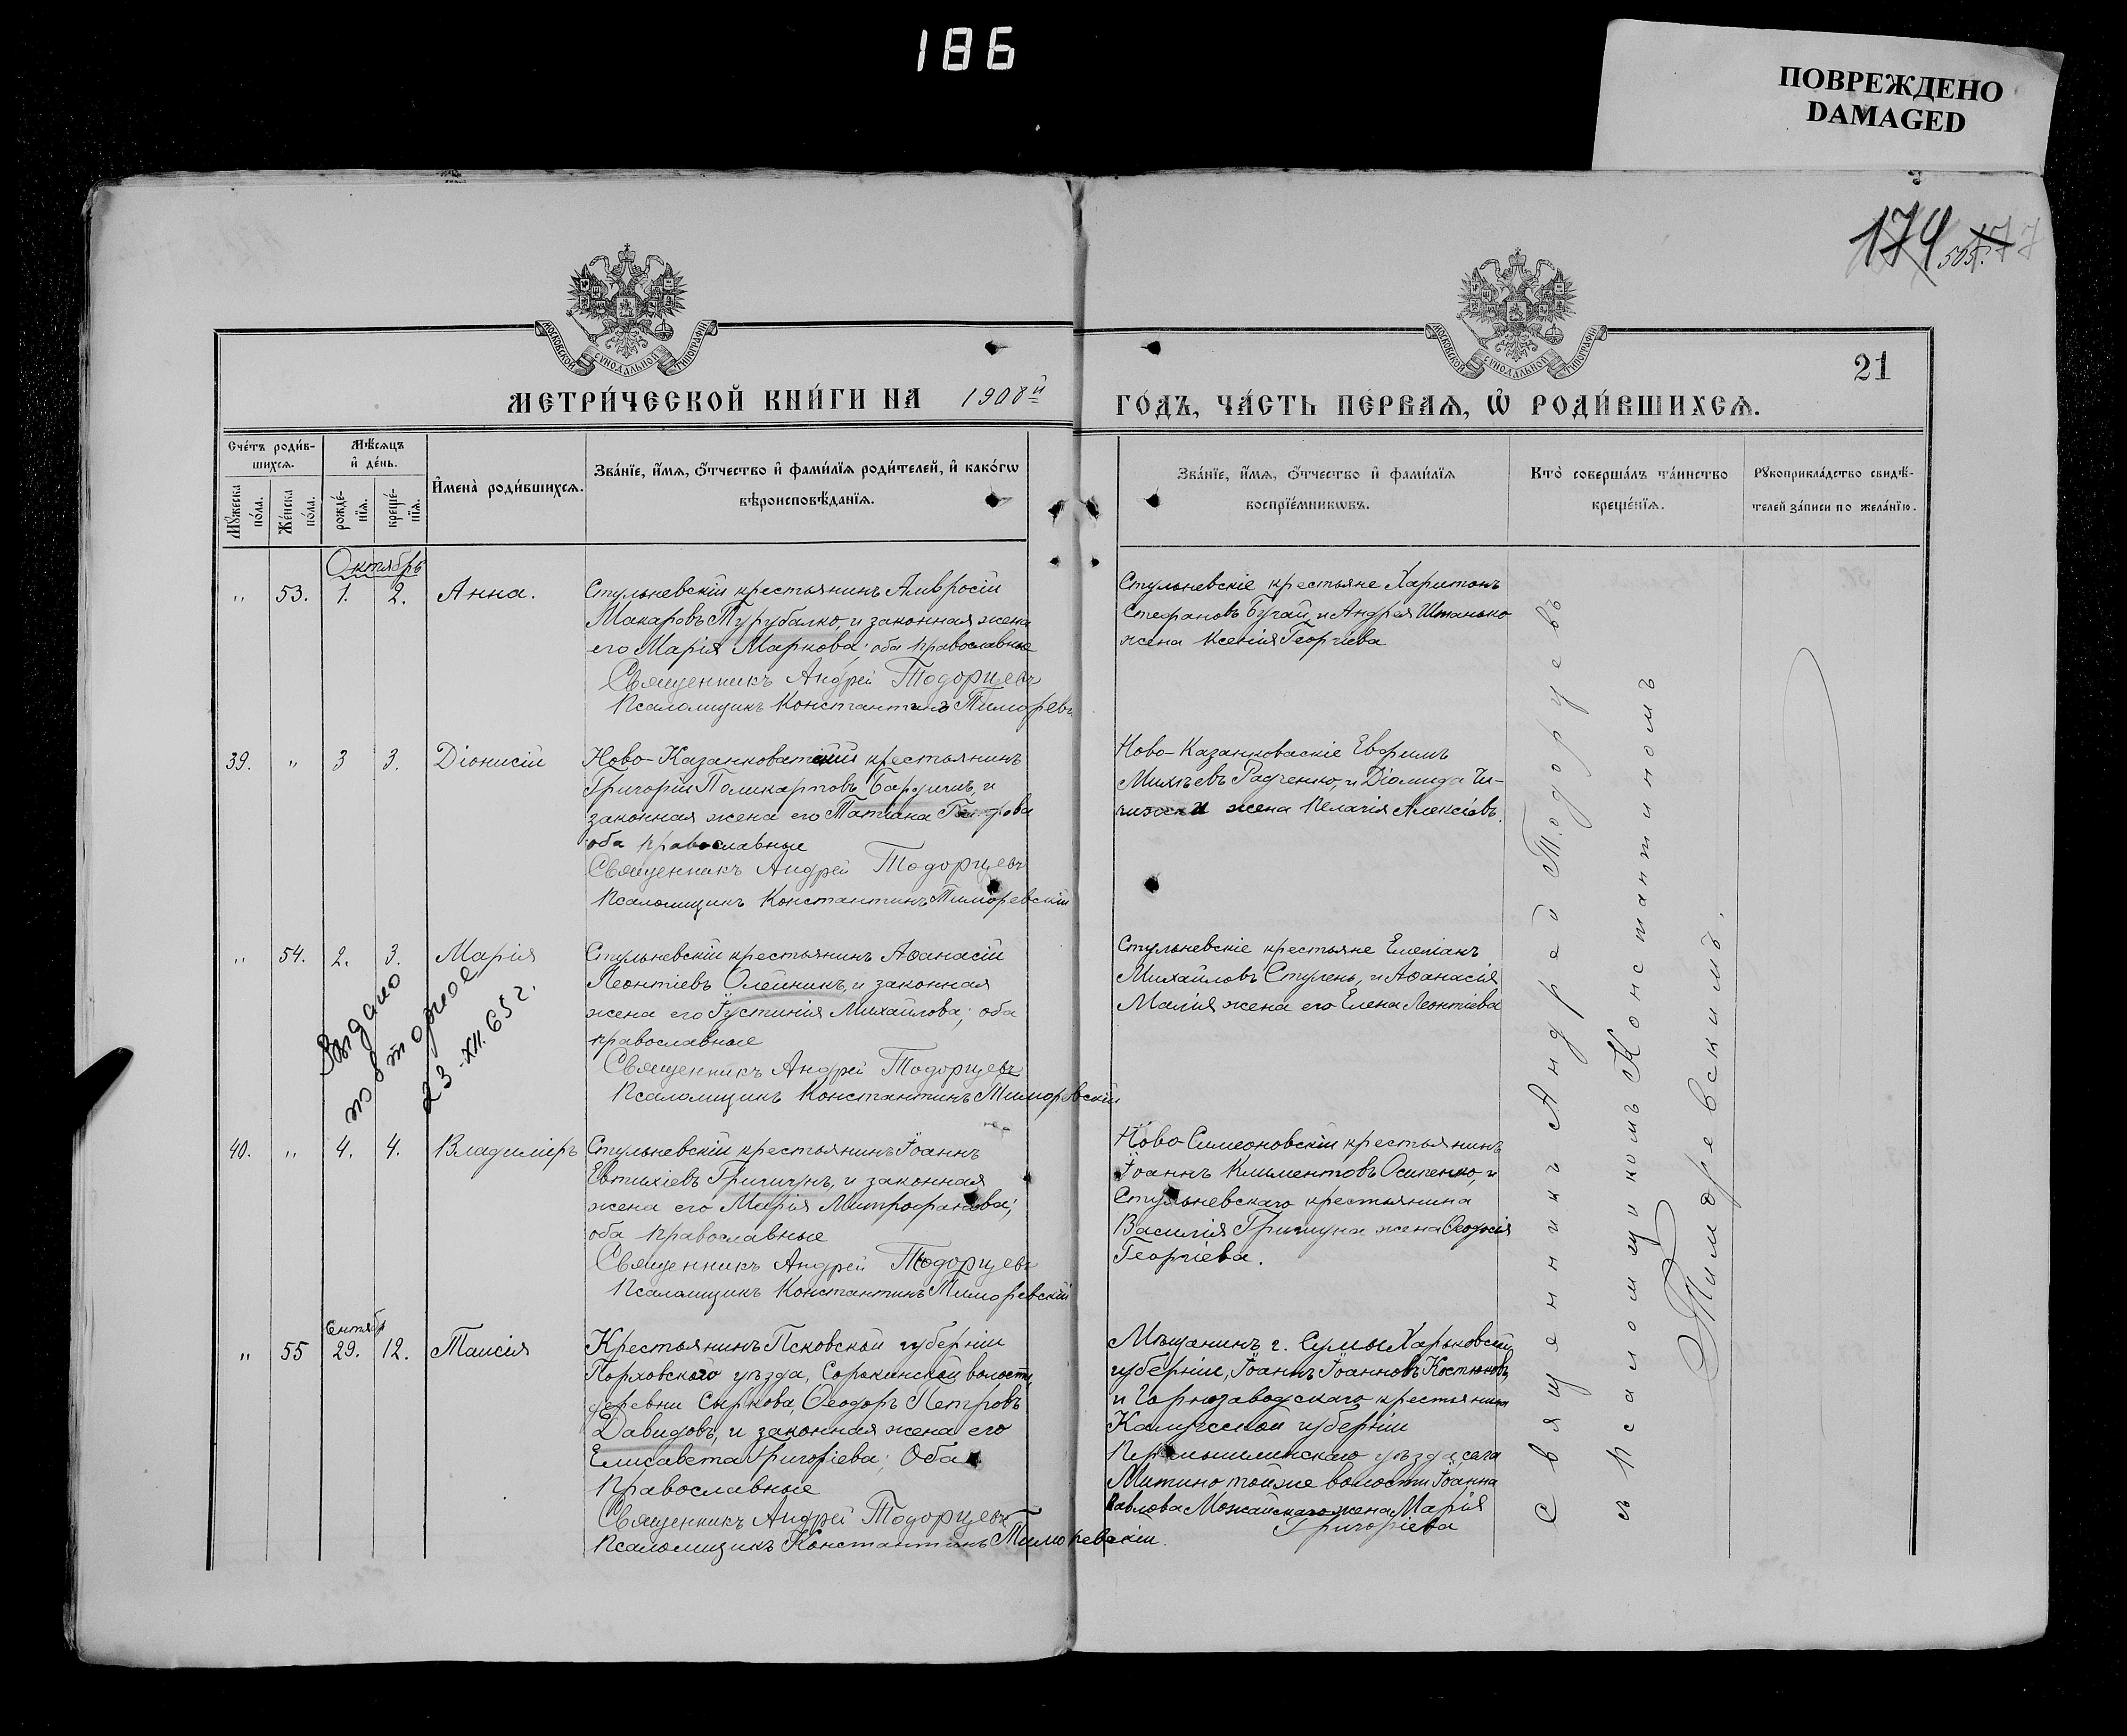 186
ПОВРЕЖДЕНО
DAMAGED
174
177
505
МОСКОВСКОЙ СУНОДАЛЬНОЙ ТИПОГРАФІИ
МОСКОВСКОЙ СУНОДАЛЬНОЙ ТИПОГРАФІИ
21
МЕТРИ́ЧЕСКОЙ КНИ́ГИ НА 1908й
ГО́ДЪ, ЧА́СТЬ ПЕ́РВАѦ, Ѡ҆ РОДИ́ВШИХСѦ.
Сче́тъ роди́в-
шихсѧ.
Мꙋ́жеска
по́ла.
Же́нска
по́ла.
Мѣ́сѧцъ
и҆ де́нь.
рожде́-
нїѧ.
креще́-
нїѧ.
И҆мена̀ роди́вшихсѧ.
Зва́нїе, и҆́мѧ, ѻ҆́тчество и҆ фами́лїѧ роди́телей, и҆ како́гѡ
вѣроисповѣ́данїѧ.
Зва́нїе, и҆́мѧ, ѻ҆́тчество и҆ фами́лїѧ
воспрїе́мникѡвъ.
Кто̀ соверша́лъ та́инство
креще́нїѧ.
Рꙋкоприкла́дство свидѣ́-
телей за́писи по жела́нїю.
Октябрь
" 53. 1. 2. Анна.
Стульневскій крестьянинъ Амвросій
Макаровъ Турубалко, и законная жена
его Марія Маркова; оба православные
Священникъ Андрей Тодорцевъ
Псаломщикъ Константинъ Тиморев
Стульневскіе крестьяне Харитонъ
Стефановъ Бугай, и Андрея Штанько
жена Ксенія Георгіева
39. " 3 3. Діонисій
Ново-Казанковатскій крестьянинъ
Григорій Поликарповъ и
законная жена его Татіана
оба православные
Священникъ Андрей Тодорцевъ
Псаломщикъ Константинъ Тиморевскій
Ново-Казанковаскіе Евфимъ
Михѣевъ Радченко, и Діомида
жена Пелагія Алексіевъ.
" 54. 2. 3. Марія
Стульневскій крестьянинъ Аѳанасій
Леонтіевъ Олейникъ, и законная
жена его Іустинія Михайлова; оба
православные
Священникъ Андрей Тодорцевъ
Псаломщикъ Константинъ Тиморевскій
Стульневскіе крестьяне Емеліанъ
Михайловъ Ступень, и Аѳанасія
Малія жена его Елена Леонтіева
Выдано
повторное
23-XII.65 г.
40. " 4. 4. Владиміръ
Стульневскій крестьянинъ Іоаннъ
Евтихіевъ Гричунъ, и законная
жена его Марія Митрофанова;
оба православные
Священникъ Андрей Тодорцевъ
Псаломщикъ Константинъ Тиморевскій
Ново-Симеоновскій крестьянинъ
Іоаннъ Климентовъ Осипенко, и
Стульневскаго крестьянина
Василія жена Ѳеодосія
Георгіева.
Сентябрь
" 55 29. 12. Таисія
Крестьянинъ Псковской губерніи
Порховского уѣзда, Сорокинской волости,
деревни Сыркова, Ѳеодоръ Петровъ
Давидовъ, и законная жена его
Елисавета Григоріева; Оба
Православные
Священникъ Андрей Тодорцевъ
Псаломщикъ Константинъ Тиморевскій.
Мѣщанинъ г. Сумы Харьковской
губерніи, Іоаннъ Іоанновъ Костюковъ,
и Горнозаводскаго крестьянина
Калужской губерніи
Перемышлинскаго уѣзда, села
Митино тойже волости Іоанна
Павлова Можайскаго жена Марія
Григоріева
Священникъ Андрей Тодорцевъ
съ Псаломщикомъ Константиномъ
Тиморевскимъ.